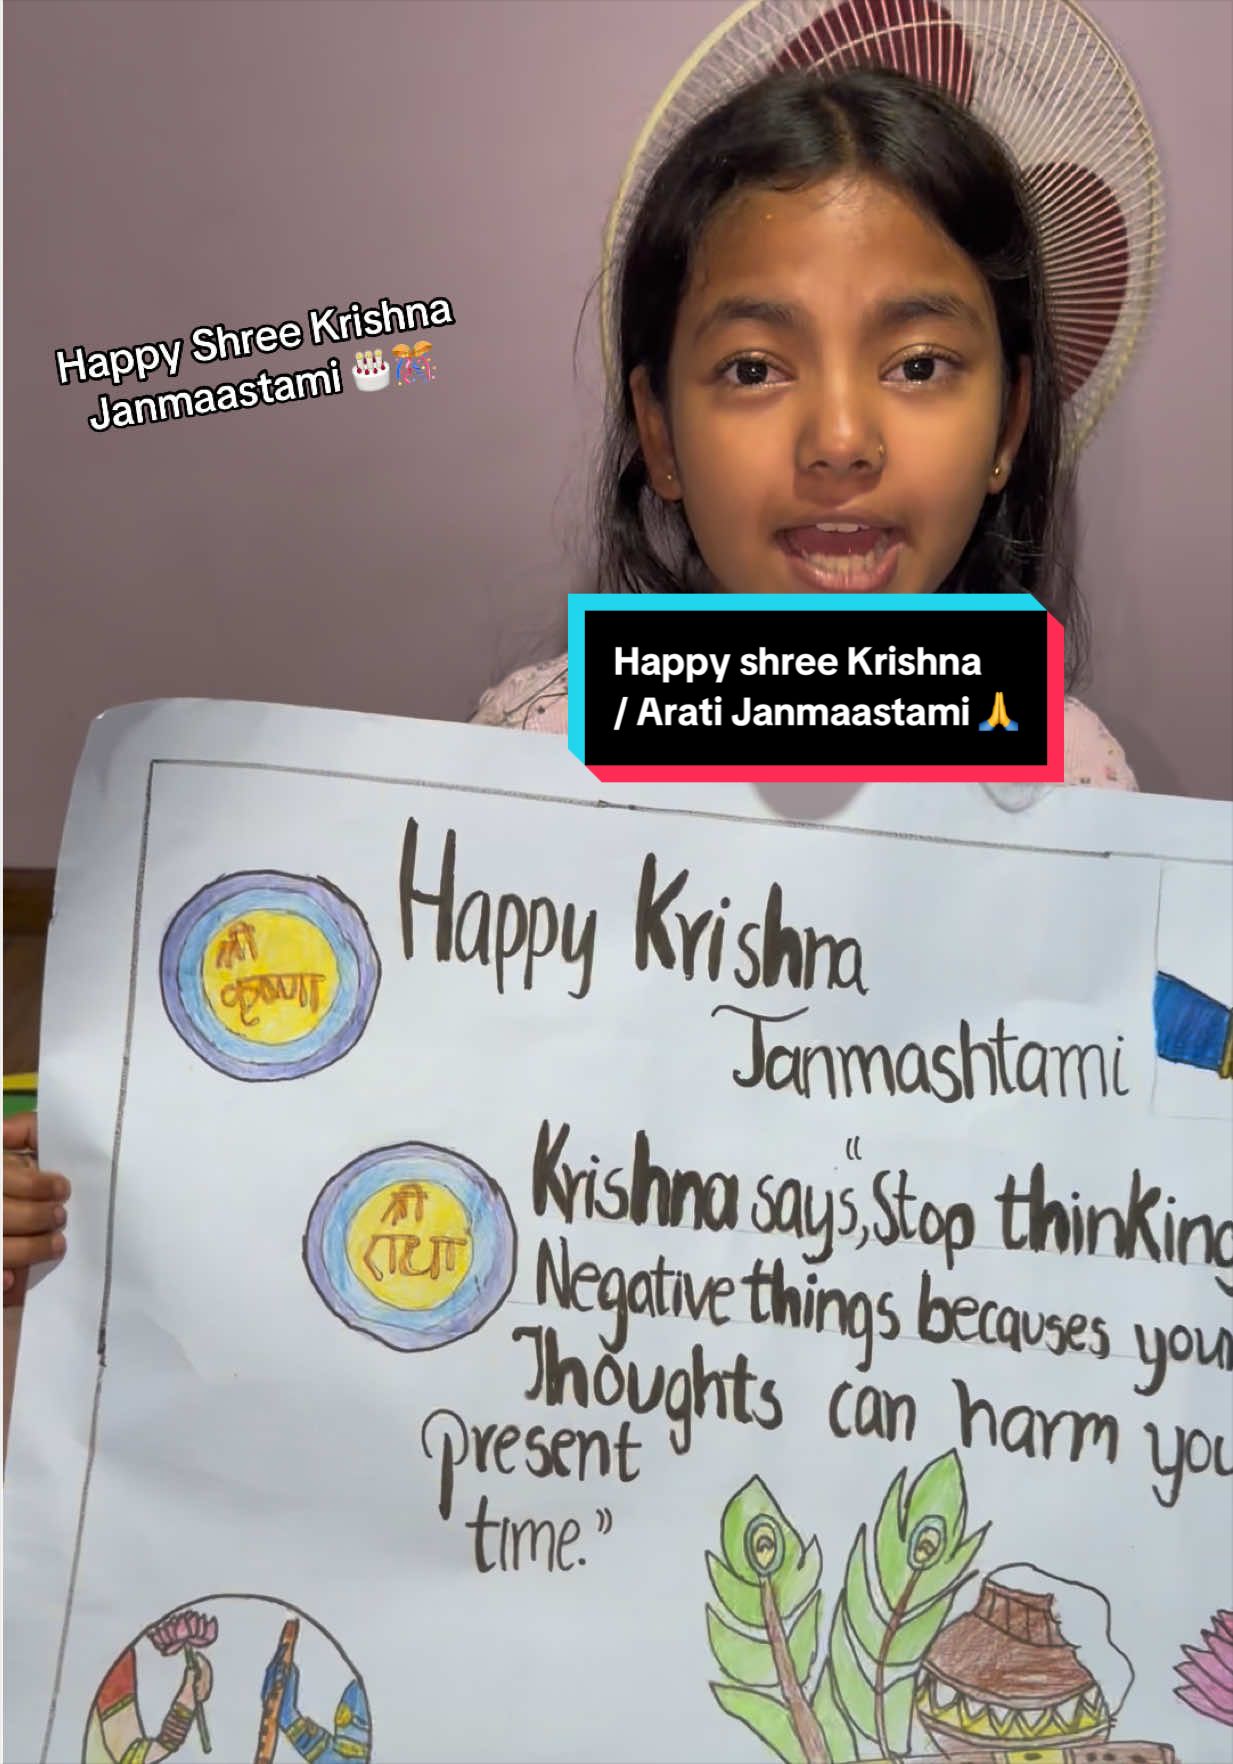 Happy Shree Krishna
Janmaastami 🎂🎊
Happy shree Krishna
/ Arati Janmaastami 🙏
Happy Krishna
Janmashtami
श्री
कृष्णा
Krishna says, "Stop thinking
Negative things becauses your
Thoughts can harm you
present
time."
श्री
राधा